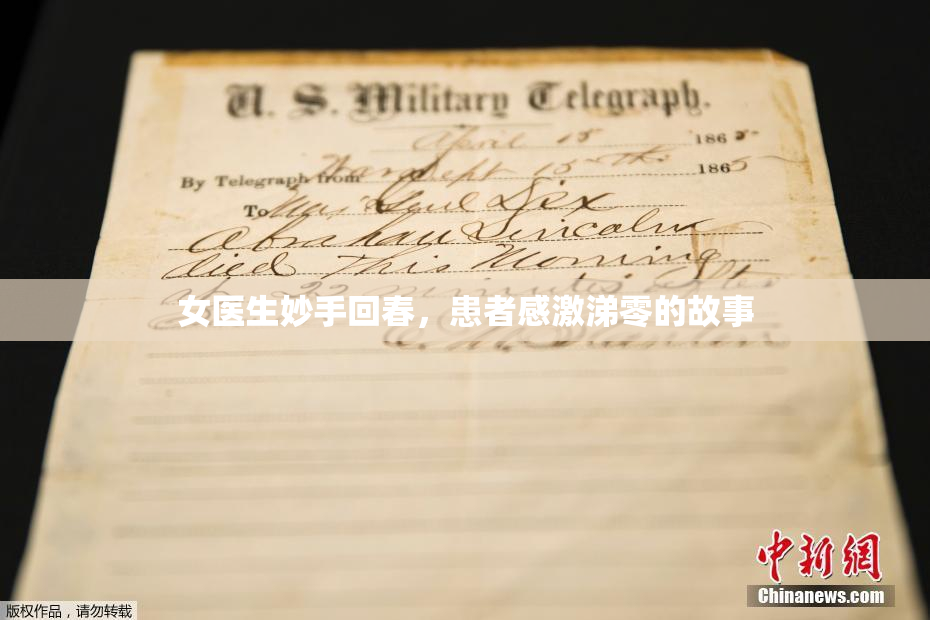 U. S. Military Telegraph.
April 15 1865
By Telegraph from War Dept 15th 1865
To Maj Genl Dix
Abraham Lincoln
died This Morning
at 22 minutes after
女医生妙手回春，患者感激涕零的故事
Stanton
中新网
Chinanews.com
版权作品，请勿转载